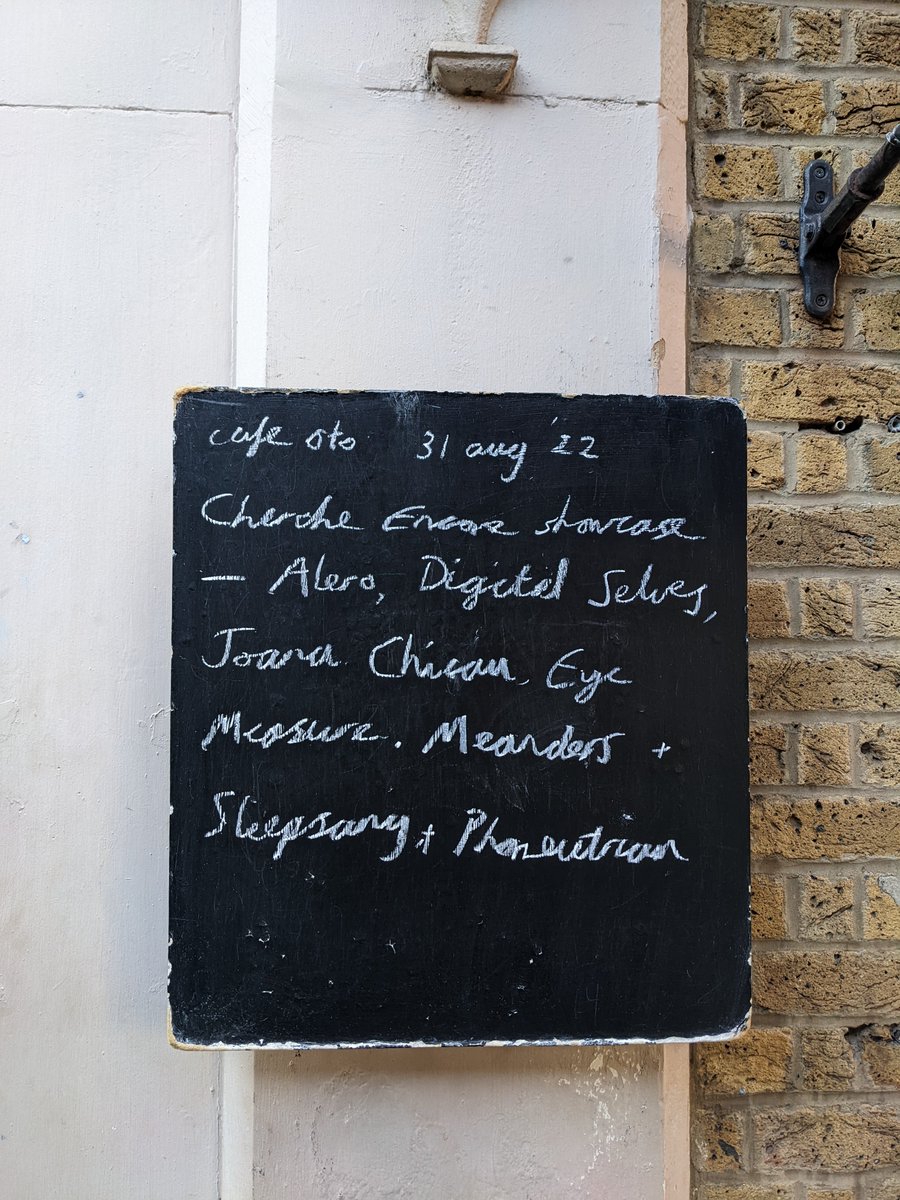 cafe oto 31 aug '22
Cherche Encore showcase
— Alero, Digital Selves,
Joana Chicau, Eye
Measure, Meanders +
Sleepsang + Phoneutrian